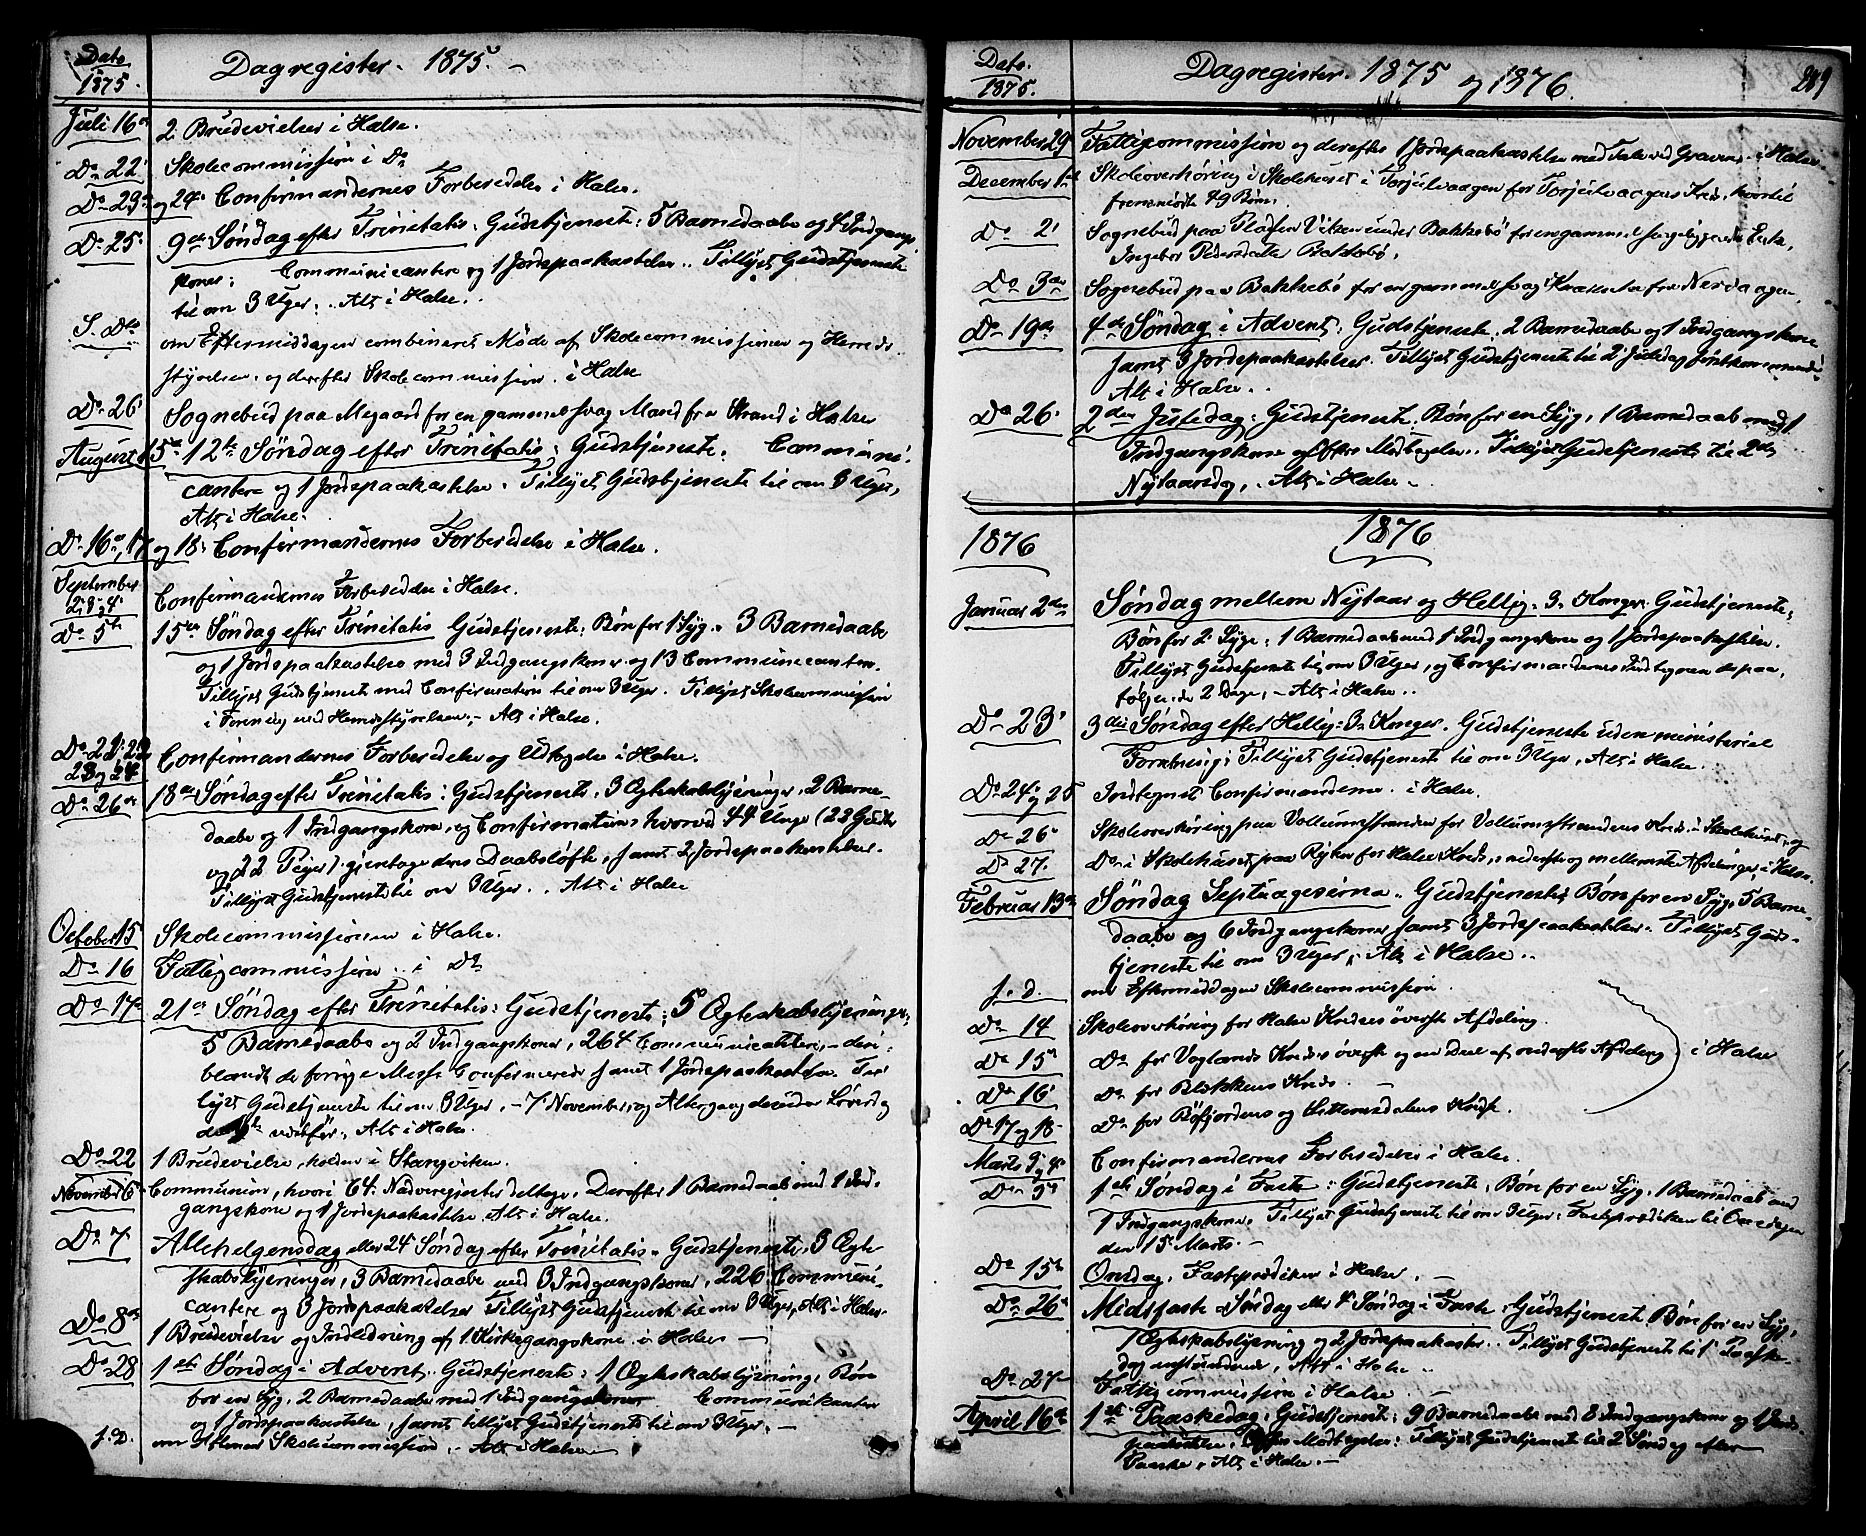 Dato
1875.
Dagregister. 1875. –
Juli 16de
2 Brudevielser i Halse.
Do 22'
Skolecommission i Do
Do 23de og 24' Confirmandernes Forberedelse i Halse.
Do 25'
9de Søndag efter Trinitatis: Gudstjeneste: 5 Barnedaabe og 4 Indgangs-
koner: Communicantere og 1 Jordspaakastelse.. Tillyst Gudstjeneste
til om 3 Uger.. Alt i Halse..
S. Dto
om Eftermiddagen combineret Møde af Skolecommissionen og Herreds-
styrelsen. og derefter Skolecommission. i Halse
Do 26'
Sognebud paa Megaard for en gammel svag Mand fra Strand i Halse
August 15de
12te Søndag efter Trinitatis: Gudstjeneste: Communi-
cantere og 1 Jordspaakastelse. Tillyst Gudstjeneste til om 3 Uger,
Alt i Halse.
Do 16de, 17 og 18' Confirmandernes Forberedelse i Halse.
September
2, 3 og 4'
Confirmandernes Forberedelse i Halse.
Do 5te
15de Søndag efter Trinitatis Gudstjeneste: Bøn for 1 Syg. 3 Barnedaabe
og 1 Jordspaakastelse med 3 Indgangskoner og 13 Communicanter.
Tillyst Gudstjeneste med Confirmation til om 3 Uger. Tillyst Skolecommission
i Forening med Herredsstyrelsen. – Alt i Halse.
Do 21' 22
23 og 24
Confirmandernes Forberedelse og Udtagelse i Halse.
Do 26de
18de Søndag efter Trinitatis: Gudstjeneste. 3 Ægteskabslysninger, 2 Barne-
daabe og 1 Indgangskone, og Confirmation, hvorved 44 Unge (22 Gutter
og 22 Piger) gjentoge deres Daabsløfte, samt 2 Jordspaakastelser.
Tillyst Gudstjeneste til om 3 Uger.. Alt i Halse
October 15
Skolecommissionen i Halse.
Do 16
Fattigcommission.. i Do
Do 17de
21de Søndag efter Trinitatis: Gudstjeneste; 5 Ægteskabslysninger,
5 Barnedaabe og 2 Indgangskoner, 264 Communicantere, – deri-
blandt de forrige Confirmerede samt 1 Jordspaakastelse. Til-
lyst Gudstjeneste til om 3 Uger, – 7 November, og Altergang desuden Løverdag
Alt i Halse.
Do 22
1 Brudevielse, holden i Stangviken.
November 6te
Communion, hvori 64 Nadvergjester deltoge. Derefter 1 Barnedaab med 1 Ind-
gangskone og 1 Jordspaakastelse, Alt i Halse.
Do 7
Allehelgensdag eller 24' Søndag efter Trinitatis. Gudstjeneste, 3 Ægte-
skabslysninger, 3 Barnedaabe med 3 Indgangskoner, 226 Communi-
cantere og 3 Jordspaakastelser Tillyst Gudstjeneste til om 3 Uger, Alt i Halse.
Do 8de
1 Brudevielse og Indledning af 1 Kirkegangskone i Halse –
Do 28
1ste Søndag i Advent. Gudstjeneste: 1 Ægteskabslysning, Bøn
for en Syg, 2 Barnedaabe med 1 Indgangskone Communikanter
og 1 Jordspaakastelse, samt tillyst Gudstjeneste til om 3 Uger. –
s. D.
om Aftenen Skolecommission, – Alt i Halse
Dato.
1875.
Dagregister. 1875 og 1876.
289
November 29
Fattigcommission og derefter 1 Jordspaakastelse med Tale ved Graven i Halse.
December 1ste
Skoleoverhøring i Skolehuset i Torjulvaagen for Torjulvaagens Kreds, hvortil
fremmødte 49 Børn.
Do 2'
Sognebud paa Pladsen Viken under Bakkebø for en gammel sengeliggende Enke,
Ingebor Pedersdatter Bakkebø.
Do 3de
Sognebud paa Bakkebø for en gammel svag fra Nordvaagen.
Do 19de
4de Søndag i Advent: Gudstjeneste. 2 Barnedaabe og 1 Indgangskone
samt 3 Jordspaakastelser. Tillyst Gudstjeneste til 2 Juledag førstkommende
Alt i Halse..
Do 26'
2den Juledag: Gudstjeneste. Bøn for en Syg, 1 Barnedaab med 1
Indgangskone og Tillyst Gudstjeneste til 2den
Nytaarsdag, – Alt i Halse –
1876
1876
Januar 2den
Søndag mellem Nytaar og Hellig-3-Konger Gudstjeneste:
Bøn for 2 Syge: 1 Barnedaab med 1 Indgangskone og 1 Jordspaakastelse.
Tillyst Gudstjeneste til om 3 Uger, og Confirmandernes Indtegnen de paa-
følgende 2 Dage, – Alt i Halse..
Do 23'
3die Søndag efter Hellig-3-Konger. Gudstjeneste uden ministerial
Forretning; Tillyst Gudstjeneste til om 3 Uger, Alt i Halse.
Do 24' og 25
Indtegnet Confirmanderne. i Halse.
Do 26'
Skoleoverhøring paa Vollumstranden for Vollumstrandens Kreds i Skolehuset, og
Do 27.
Do i Skolehuset paa Ryken for Halse Kreds, nederste og mellemste Afdelinger i Halse.
Februar 13de
Søndag Septuagesima.. Gudstjeneste; Bøn for en Syg, 5 Barne-
daabe og 6 Indgangskoner, samt 3 Jordspaakastelser. Tillyst Guds-
tjeneste til om 3 Uger, Alt i Halse..
s. d.
om Eftermiddagen Skolecommission.
Do 14
Skoleoverhøring for Halse Kredses øverste Afdeling.
Do 15de
Do for Vaglands Kreds øverste og en Deel af nederste Afdeling i Halse
Do 16'
Do for Blekkens Kreds. –
Do 17 og 18
Do for Bøfjordens og Settemsdalens Kreds.
Marts 3 og 4'
Confirmandernes Forberedelse i Halse.
Do 5te
1ste Søndag i Faste: Gudstjeneste, Bøn for en Syg, 1 Barnedaab med
1 Indgangskone. Tillyst Gudstjeneste til om 3 Uger: Fasteprædiken til Onsdagen
den 15 Marts. –
Do 15de
Onsdag. Fasteprædiken i Halse. –
Do 26'
Midfaste Søndag eller 4' Søndag i Faste: Gudstjeneste Bøn for en Syg,
1 Ægteskabslysning og 2 Jordspaakastelser.. Tillyst Gudstjeneste til 1' Paaske-
dag Alt i Halse..
Do 27
Fattigcommission i Halse. –
April 16de
1ste Paaskedag: Gudstjeneste: 9 Barnedaabe med 8 Indgangskoner og 1 Jords-
paakastelse. Tillyst Gudstjeneste til 2 Søndag efter
Paaske, Alt i Halse. –